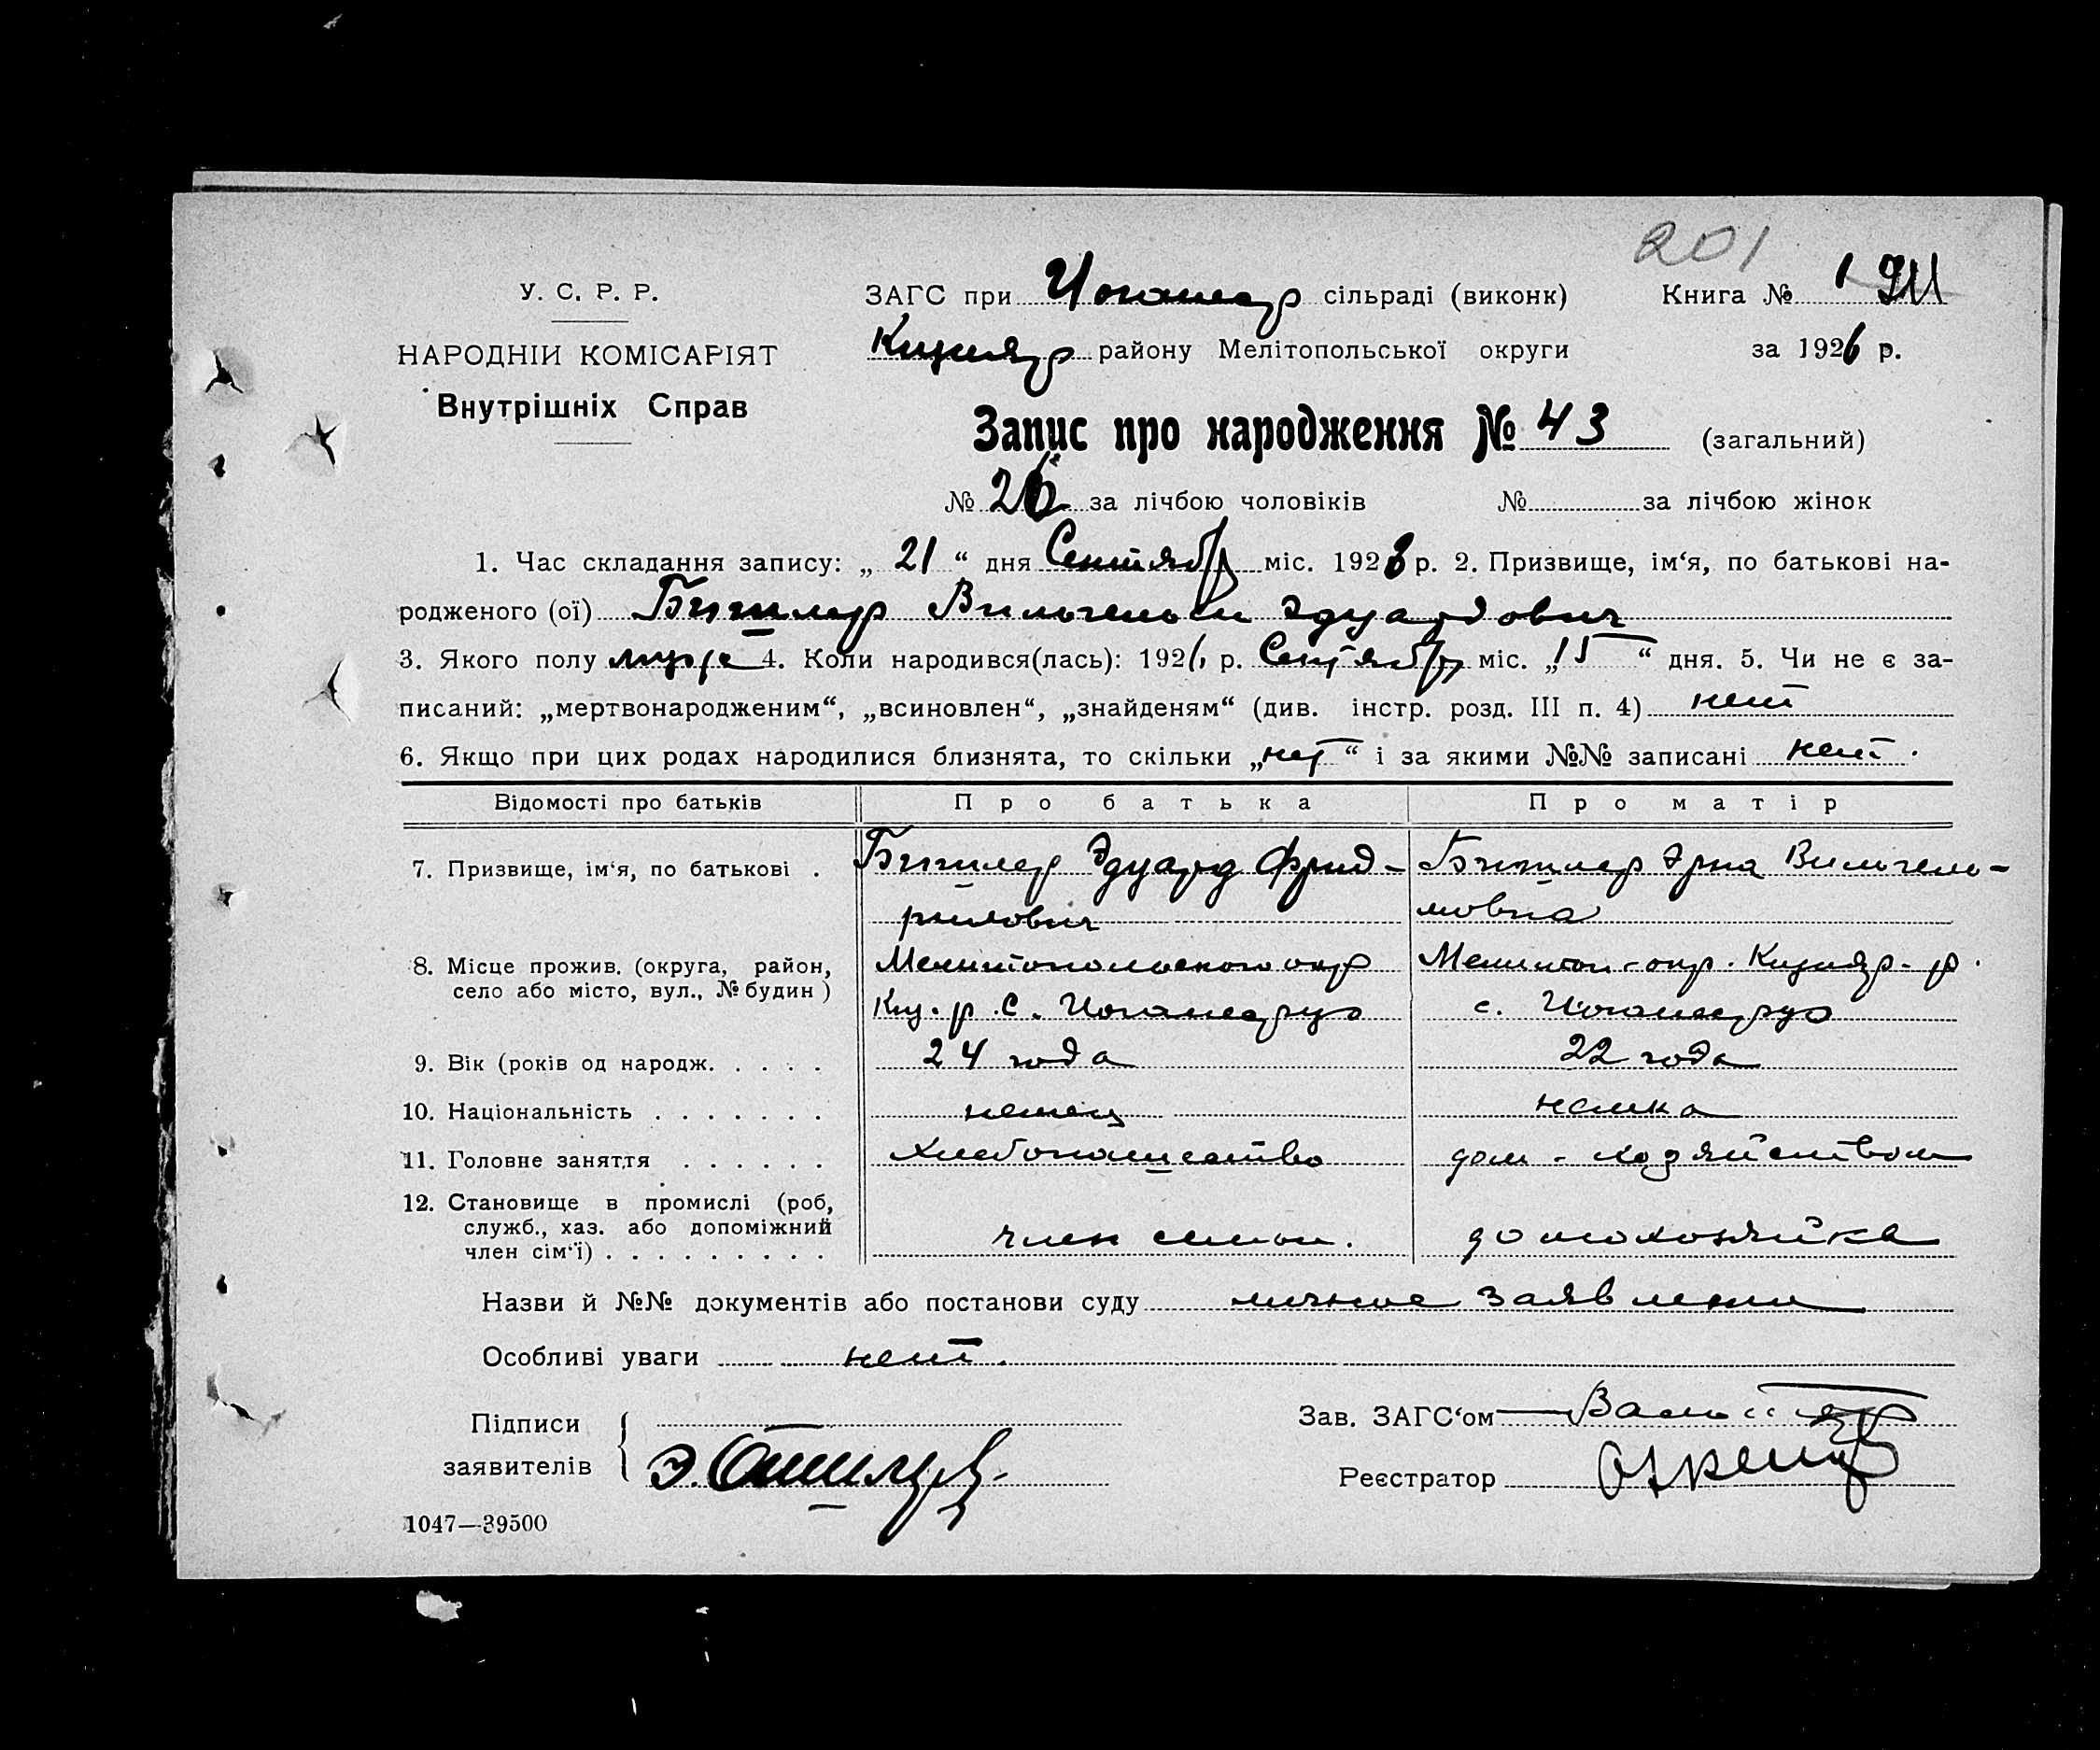 201
У. С. Р. Р.
НАРОДНІЙ КОМІСАРІЯТ
Внутрішніх Справ
ЗАГС при сільраді (виконк) Книга №
району Мелітопольської округи за 1926 р.
Запис про народження № 43 (загальний)
№ 26 за лічбою чоловіків № за лічбою жінок
1. Час складання запису: „ 21 “ дня Сентября міс. 192 р. 2. Призвище, ім‘я, по батькові на-
родженого (ої) Битлер Вильгельм Эдуардович
3. Якого полу 4. Коли народився(лась): 1926 р. Сентября міс. „15“ дня. 5. Чи не є за-
писаний: „мертвонародженим“, „всиновлен“, „знайденям“ (див. інстр. розд. III п. 4) нет
6. Якщо при цих родах народилися близнята, то скільки „нет“ і за якими №№ записані нет.
Відомості про батьків Про батька Про матір
7. Призвище, ім‘я, по батькові . Битлер Эдуард Фрид- Битлер Эрна Вильгель-
рихович мовна
8. Місце прожив. (округа, район, Мелитопольского окр Мелитоп - окр. Кизияр - р.
село або місто, вул., № будин ) Киз. р. с. Иоганесруэ с. Иоганесруэ
9. Вік (років од народж. . . . . 24 года 22 года
10. Національність . . . . . . . немец немка
11. Головне заняття . . . . . . Хлебопашество дом - хозяйством
12. Становище в промислі (роб,
служб., хаз. або допоміжний
член сім‘ї) . . . . . . . . . член семьи. домохозяйка
Назви й №№ документів або постанови суду личное заявление
Особливі уваги нет.
Підписи
заявителів
Зав. ЗАГС‘ом
Реєстратор
1047—39500